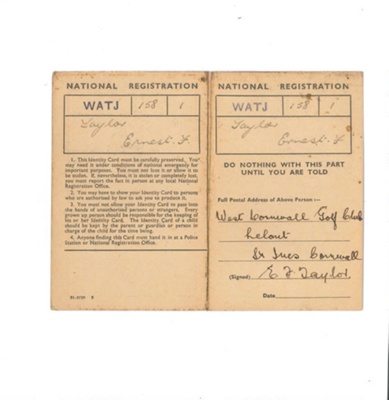 NATIONAL REGISTRATION
WATJ 158 1
Taylor
Ernest. F.
1. This Identity Card must be carefully preserved. You may need it under conditions of national emergency for important purposes. You must not lose it or allow it to be stolen. If, nevertheless, it is stolen or completely lost, you must report the fact in person at any local National Registration Office.
2. You may have to show your Identity Card to persons who are authorised by law to ask you to produce it.
3. You must not allow your Identity Card to pass into the hands of unauthorised persons or strangers. Every grown up person should be responsible for the keeping of his or her Identity Card. The Identity Card of a child should be kept by the parent or guardian or person in charge of the child for the time being.
4. Anyone finding this Card must hand it in at a Police Station or National Registration Office.
NATIONAL REGISTRATION
WATJ 158 1
Taylor
Ernest. F.
DO NOTHING WITH THIS PART
UNTIL YOU ARE TOLD
Full Postal Address of Above Person:—
West Cornwall Golf Club
Lelant
St Ives Cornwall
(Signed) E F Taylor.
Date